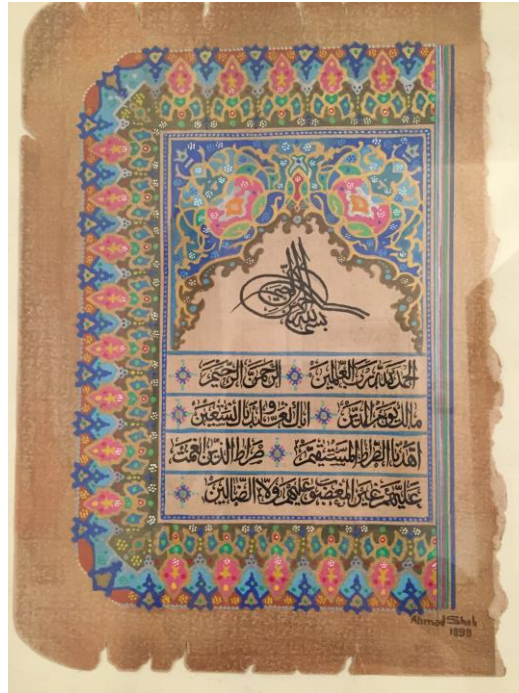 بسم الله الرحمن الرحيم
الحمد لله رب العلمين الرحمن الرحيم
مالك يوم الدين اياك نعبد واياك نستعين
اهدنا الصراط المستقيم صراط الذين انعمت
عليهم غير المغضوب عليهم ولا الضالين
Ahmad Shah
1899